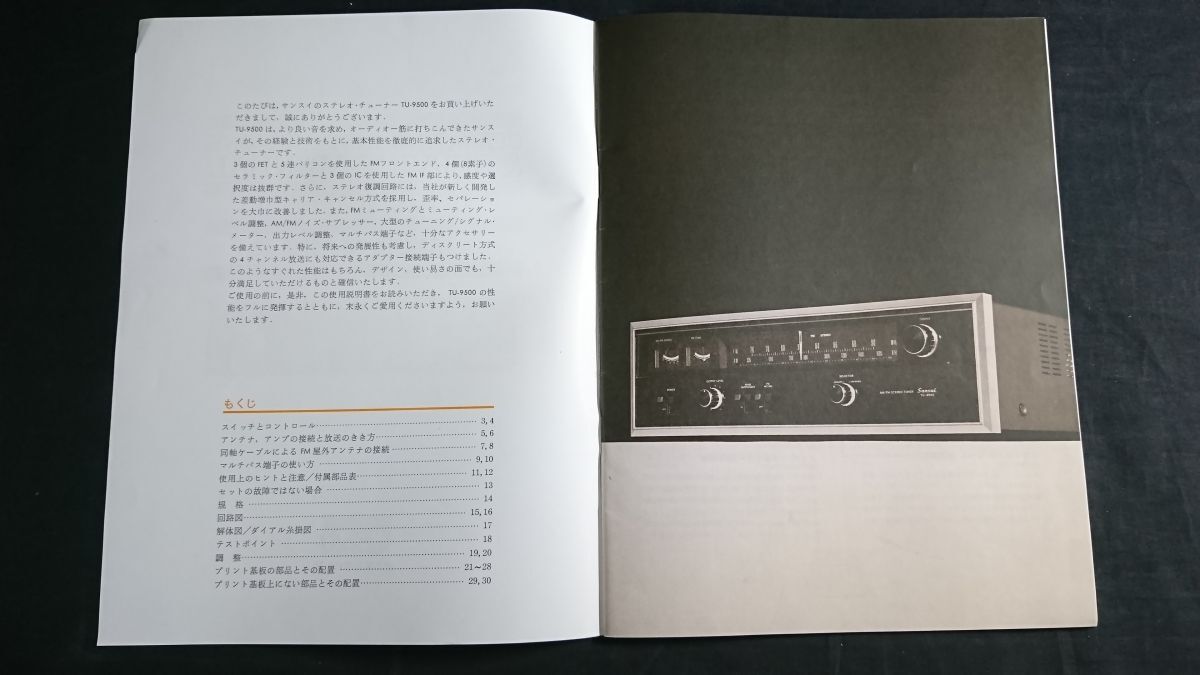 このたびは，サンスイのステレオ・チューナー TU-9500 をお買い上げいた
だきまして，誠にありがとうございます．
TU-9500 は，より良い音を求め，オーディオ一筋に打ちこんできたサンス
イが，その経験と技術をもとに，基本性能を徹底的に追求したステレオ・
チューナーです．
3個の FET と5連バリコンを使用した FMフロントエンド，4個（8素子）の
セラミック・フィルターと3個の IC を使用した FM IF 部により，感度や選
択度は抜群です．さらに，ステレオ復調回路には，当社が新しく開発し
た差動増巾型キャリア・キャンセル方式を採用し，歪率，セパレーショ
ンを大巾に改善しました．また，FMミューティングとミューティング・レ
ベル調整，AM/FMノイズ・サプレッサー，大型のチューニング/シグナル・
メーター，出力レベル調整，マルチパス端子など，十分なアクセサリー
を備えています．特に，将来への発展性も考慮し，ディスクリート方式
の4チャンネル放送にも対応できるアダプター接続端子もつけました．
このようなすぐれた性能はもちろん，デザイン，使い易さの面でも，十
分満足していただけるものと確信いたします．
ご使用の前に，是非，この使用説明書をお読みいただき， TU-9500 の性
能をフルに発揮するとともに，末永くご愛用くださいますよう，お願い
いたします．
もくじ
スイッチとコントロール……………………………………………… 3, 4
アンテナ，アンプの接続と放送のきき方…………………………… 5, 6
同軸ケーブルによる FM 屋外アンテナの接続……………………… 7, 8
マルチパス端子の使い方 …………………………………………… 9, 10
使用上のヒントと注意／付属部品表………………………………… 11, 12
セットの故障ではない場合 ………………………………………… 13
規　格 ………………………………………………………………… 14
回路図…………………………………………………………………… 15, 16
解体図／ダイアル糸掛図 …………………………………………… 17
テストポイント ……………………………………………………… 18
調　整…………………………………………………………………… 19, 20
プリント基板の部品とその配置 …………………………………… 21～28
プリント基板上にない部品とその配置……………………………… 29, 30
FM STEREO
OUTPUT LEVEL
SELECTOR
AM/FM STEREO TUNER
Sansui
TU-9500